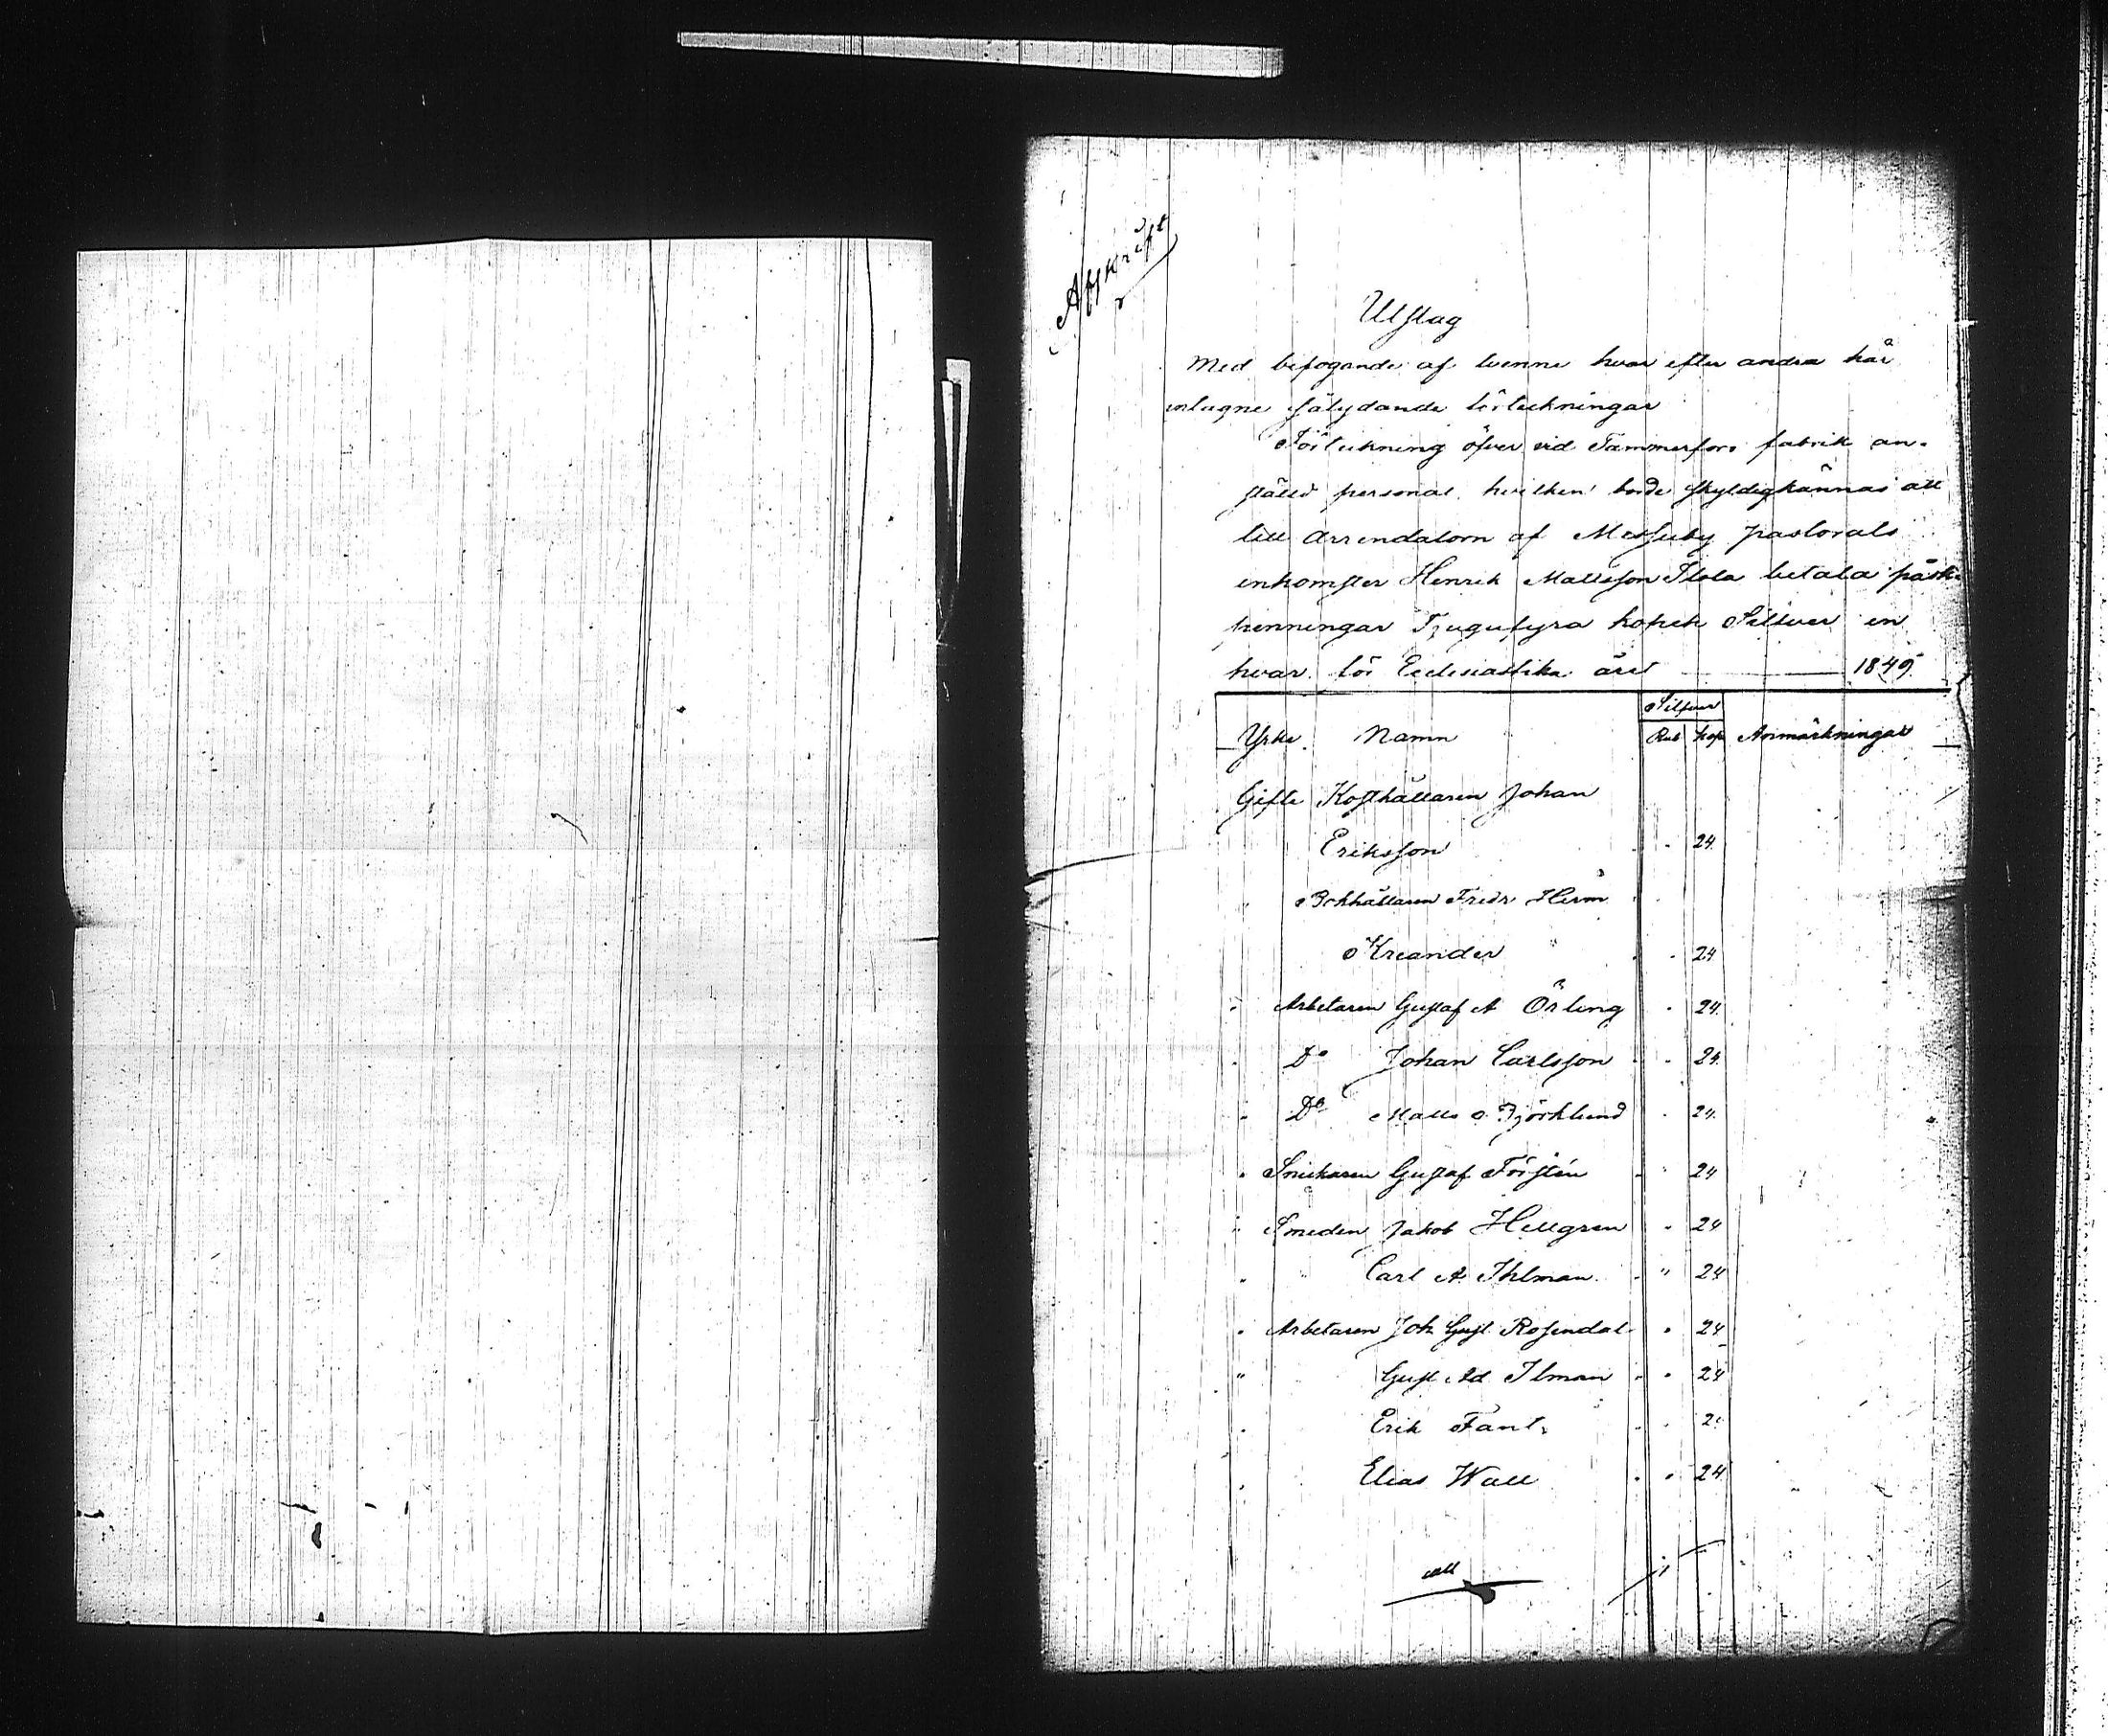 Afskrift
Utslag
Med befogande af tvenne hvar efter andra här
intagne sålydande förteckningar
Förteckning öfver vid Tammerfors fabrik an-
ställd personal, hvilken borde skyldigkännas att
till Arrendatorn af Messuby pastorals
inkomster Henrik Mattsson Ilola betala påsk-
penningar Tjugufyra kopek Silfver en
hvar för Ecclesiastika året 1849.
Silfver
Yrke. Namn Rub kop Anmärkningar
Gifte Kosthållaren Johan
Eriksson 24.
" Bokhållaren Fredr Herm
Kreander 24
" Arbetaren Gustaf A Örling 24.
" Do Johan Carlsson 24.
" Do Matts Björklund 24.
" Snickaren Gustaf Forstén 24
" Smeden Jakob Hellgren 24
" " Carl A. Ihlman " 24
" Arbetaren Joh Gust Rosendal 24
" Gust Ad Ilman 24
" Erik Fant 2
" Elias Wall 24